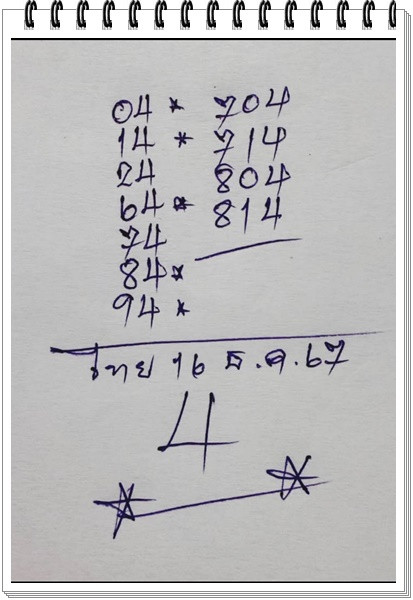 04 * 704
14 * 714
24 804
64 * 814
74
84 *
94 *
ไทย 16 ธ.ค.67
4